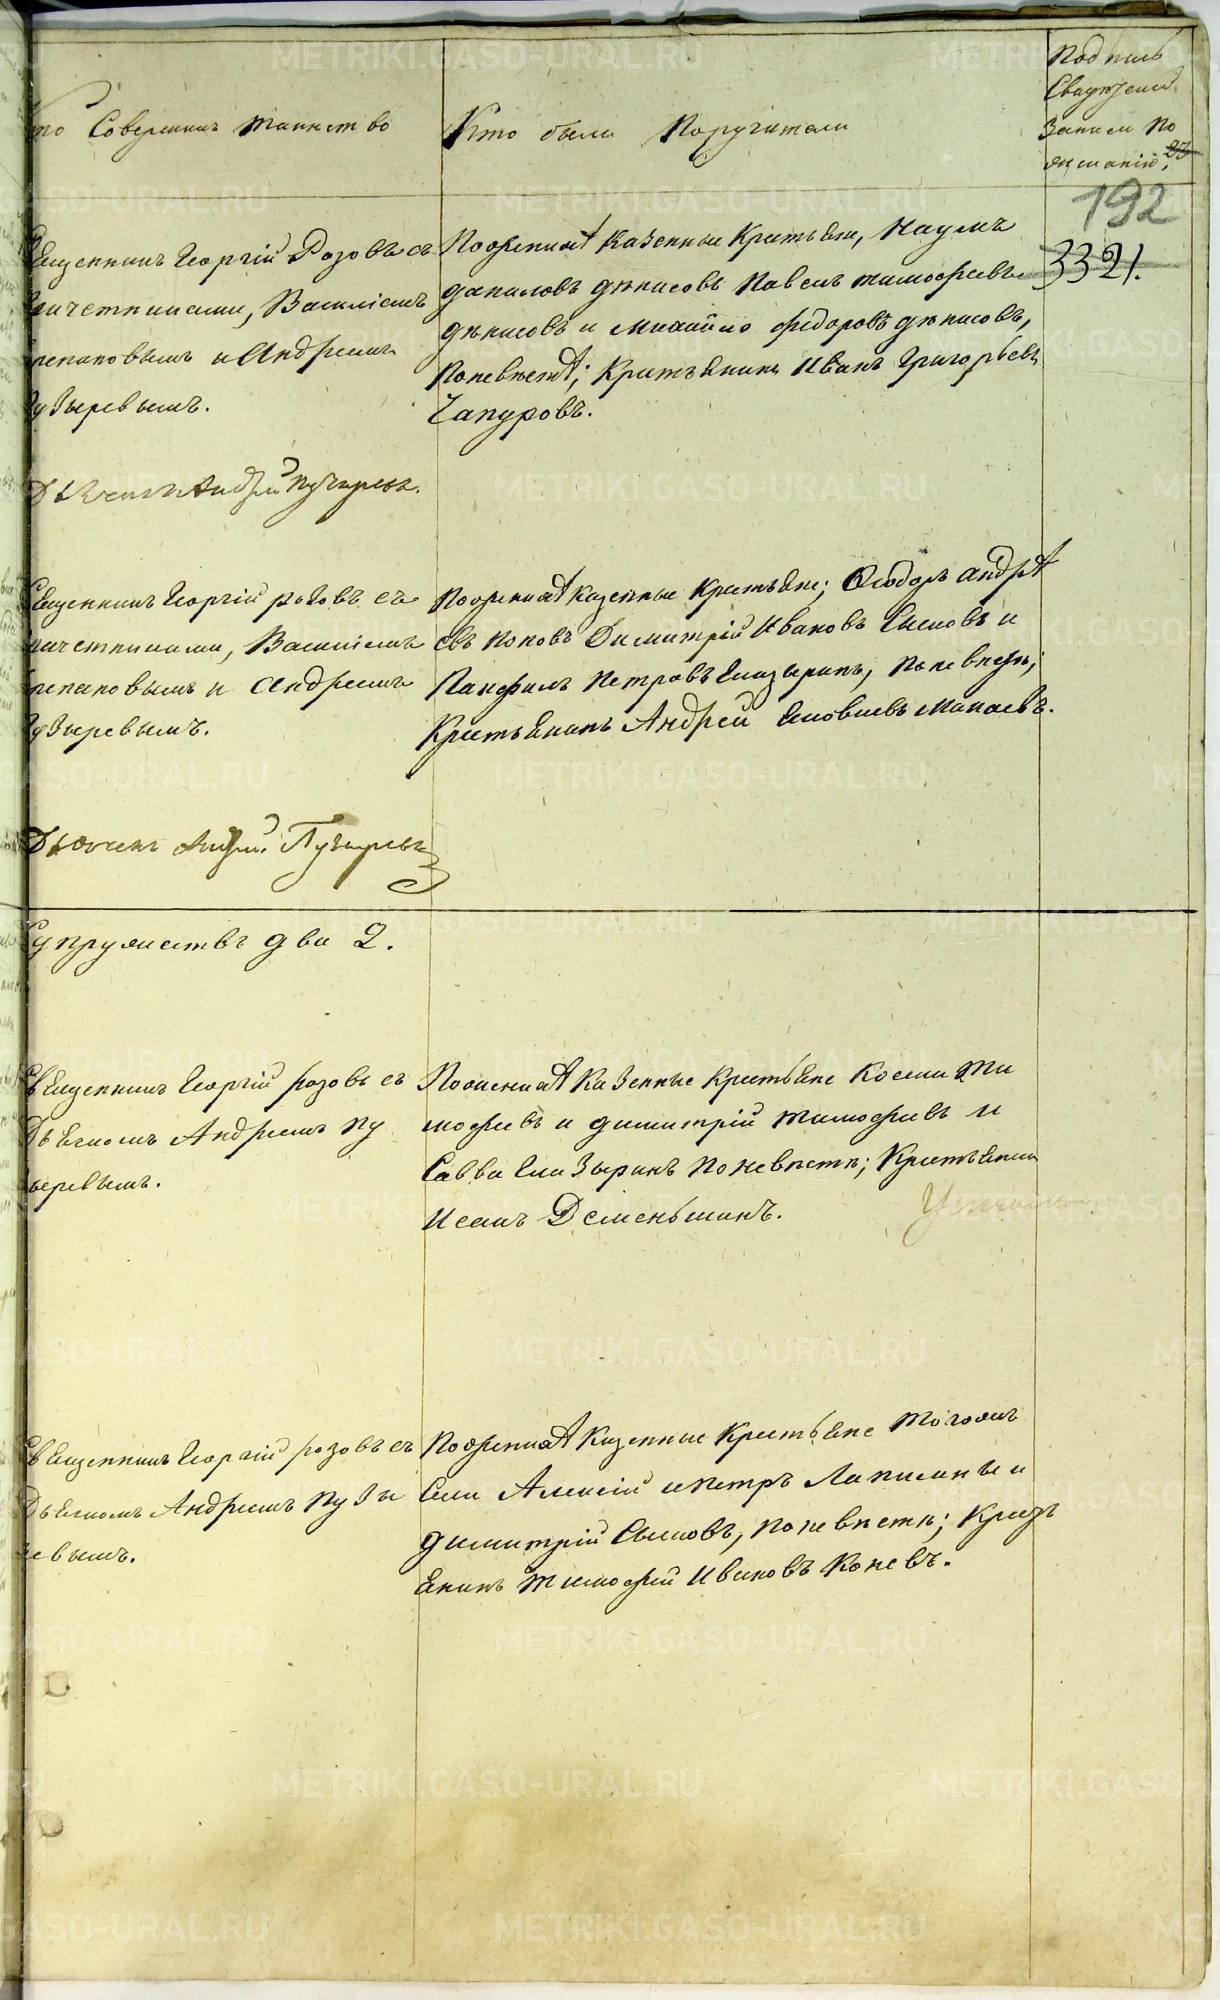 Кто Совершилъ таинство
Кто были Поручители
Подпись
Свидетелей
Записи По
желанію.
23
192
3321.
Священникъ Георгій Розовъ съ
причетниками, Василіемъ
Степановымъ и Андреемъ
Пузыревымъ.
Дьячекъ Андрей Пузыревъ.
По женихѣ казенные Крестьяне, Наумъ
даниловъ дѣнисовъ Павелъ тимофѣевъ
дѣнисовъ и михайло федоровъ дѣнисовъ,
По невѣстѣ; Крестьянинъ Иванъ Григорьевъ
Чапуровъ.
Священникъ Георгій розовъ съ
причетниками, Василіемъ
Степановымъ и Андреемъ
Пузыревымъ.
Дьячекъ Андрей Пузыревъ
По женихѣ казенные Крестьяне; Ѳеодоръ андрѣ
евъ поповъ Димитрій Ивановъ и
Панфилъ Петровъ Елизыринъ, по невѣстѣ;
Крестьянинъ Андрей
Супружествъ два 2.
Священникъ Георгій розовъ съ
Дьячкомъ Андреемъ Пу
зыревымъ.
По женихѣ казенные Крестьяне Косма ти
мофѣевъ и димитрій тимофѣевъ и
Савва Елизыринъ по невѣстѣ; Крестьянинъ
Исакъ Деменьшинъ.
Священникъ Георгій розовъ съ
Дьячкомъ Андреемъ Пузы
ревымъ.
По женихѣ казенные Крестьяне тогожъ
села Алексій и петръ Лапшины и
димитрій по невѣстѣ; Крест
янинъ тимофей Ивановъ Коневъ.